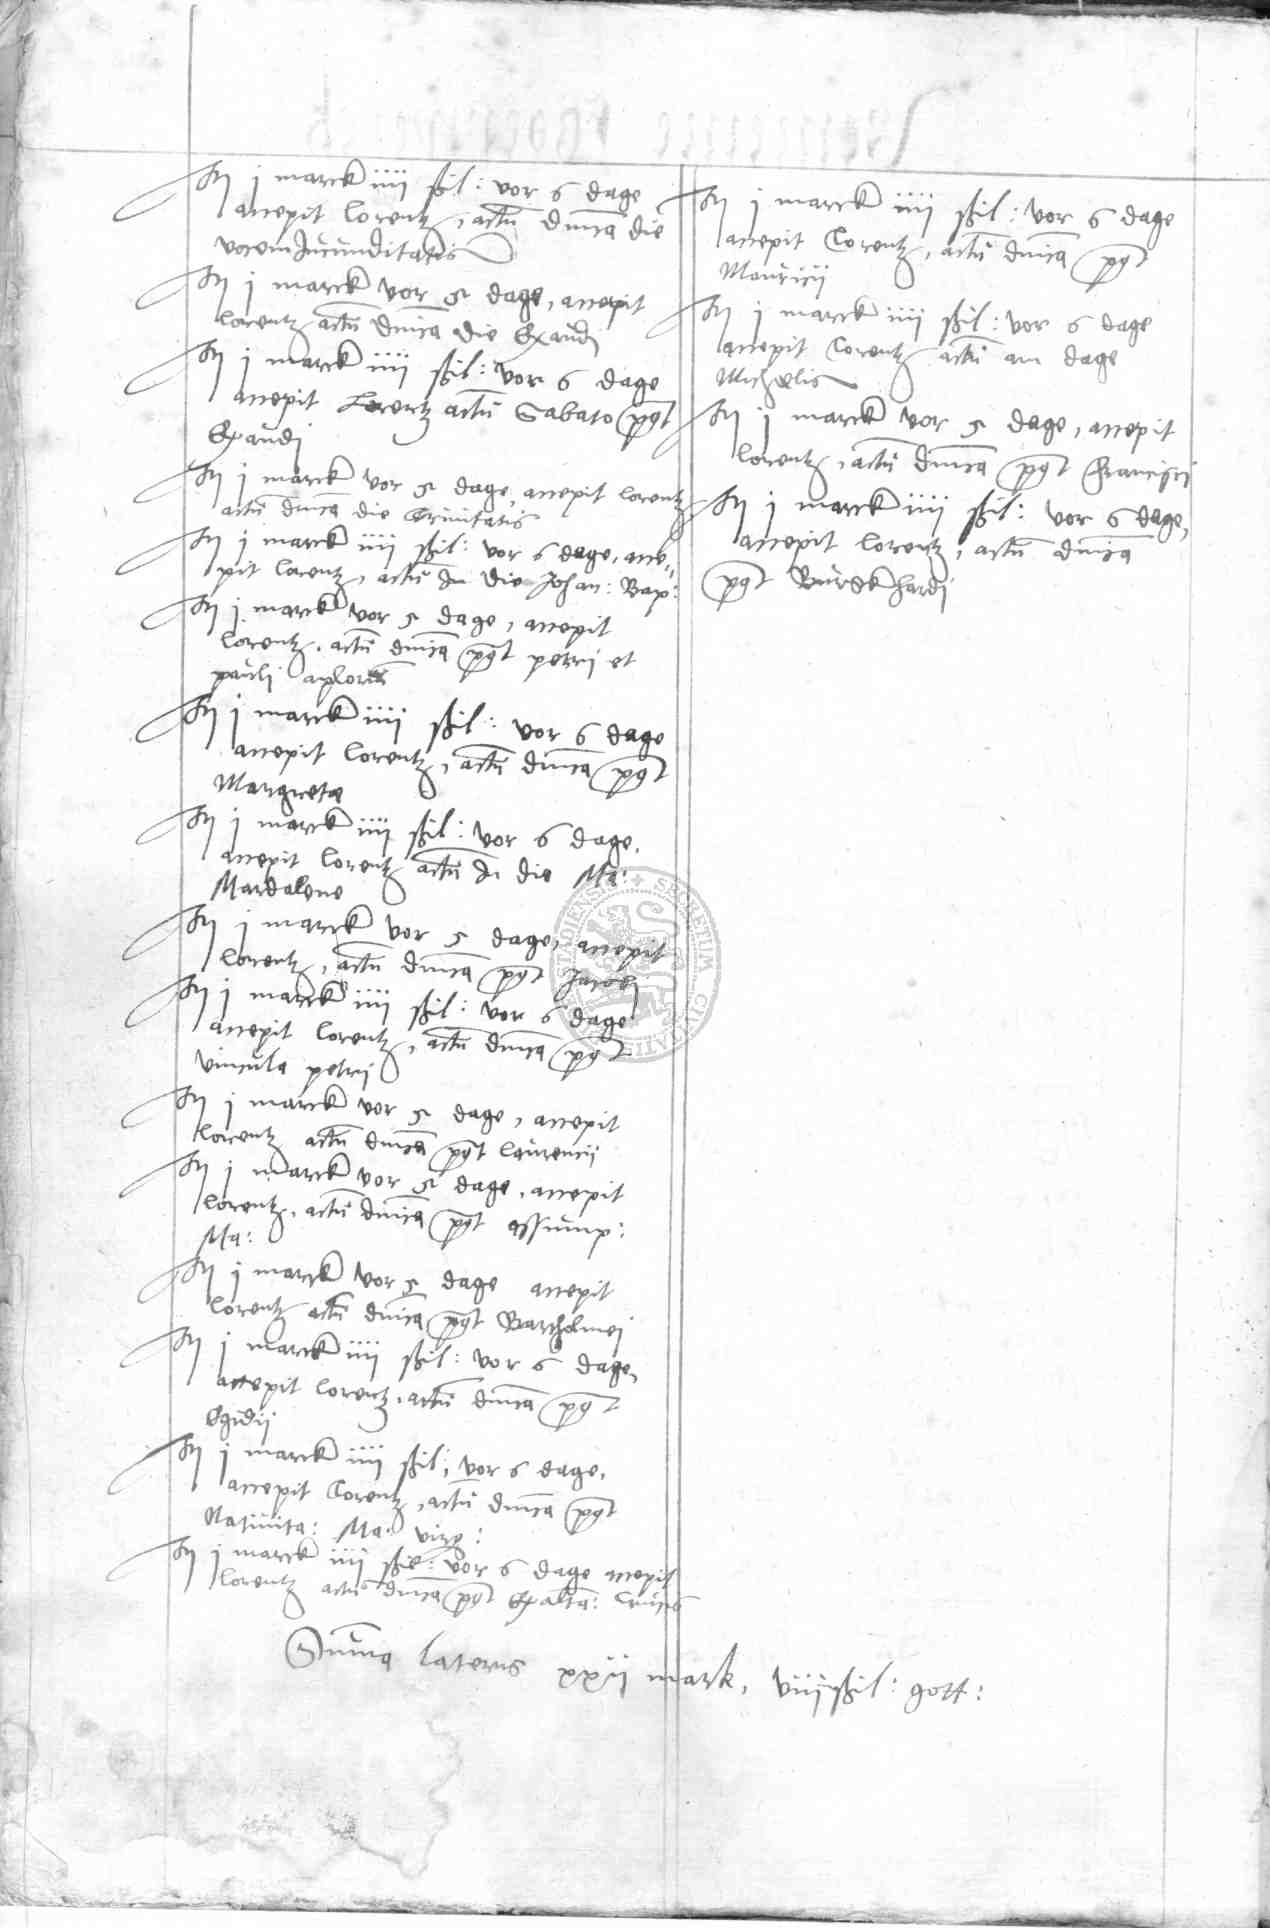 It j marck iiij ßhil: vor 6 dage
accepit Lorentz, actū dnica die
vocem Jucunditatis
It j marck vor 5 dage, accepit
Lorentz actū dnica die Exaudi
It j marck iiij ßhil: vor 6 dage
accepit Lorentz actū Sabato pꝰt
Exaudi
It j marck vor 5 dage, accepit Lorentz
actū dnica die Trinitatis
It j marck iiij ßhil: vor 6 dage, acce-
pit Lorentz, actū In die Johan: Bap:
It j marck vor 5 dage, accepit
Lorentz, actū dnica pꝰt petri et
pauli aplorū
It j marck iiij ßhil: vor 6 dage
accepit Lorentz, actū dnica pꝰt
Margretæ
It j marck iiij ßhil: vor 6 dage,
accepit Lorentz actū In die Ma:
Mardalene
It j marck vor 5 dage, accepit
Lorentz, actū dnica pꝰt Jacobi
It j marck iiij ßhil: vor 6 dage
accepit Lorentz, actū dnica pꝰt
vincula petri
It j marck vor 5 dage, accepit
Lorentz actū dnica pꝰt Laurencij
It j marck vor 5 dage, accepit
Lorentz, actū dnica pꝰt assump:
Ma:
It j marck vor 5 dage accepit
Lorentz actū dnica pꝰt Bartholmei
It j marck iiij ßhil: vor 6 dage,
accepit Lorentz, actū dnica pꝰt
Egidij
It j marck iiij ßhil: vor 6 dage,
accepit Lorentz, actū dnica pꝰt
Natiuita: Ma: virg:
It j marck iiij ßhil: vor 6 dage accepit
Lorentz actū dnica pꝰt Exalta: Crucis
It j marck iiij ßhil: vor 6 dage
accepit Lorentz, actū dnica pꝰt
Mauricij
It j marck iiij ßhil: vor 6 dage
accepit Lorentz actū am dage
Michelis
It j marck vor 5 dage, accepit
Lorentz, actū dnica pꝰt Francisci
It j marck iiij ßhil: vor 6 dage,
accepit Lorentz, actū dnica
pꝰt Burckhardi
Suma lateris xxij mark, viij ßhil: gott:
SECRETUM CIVITATIS STADIENSIS